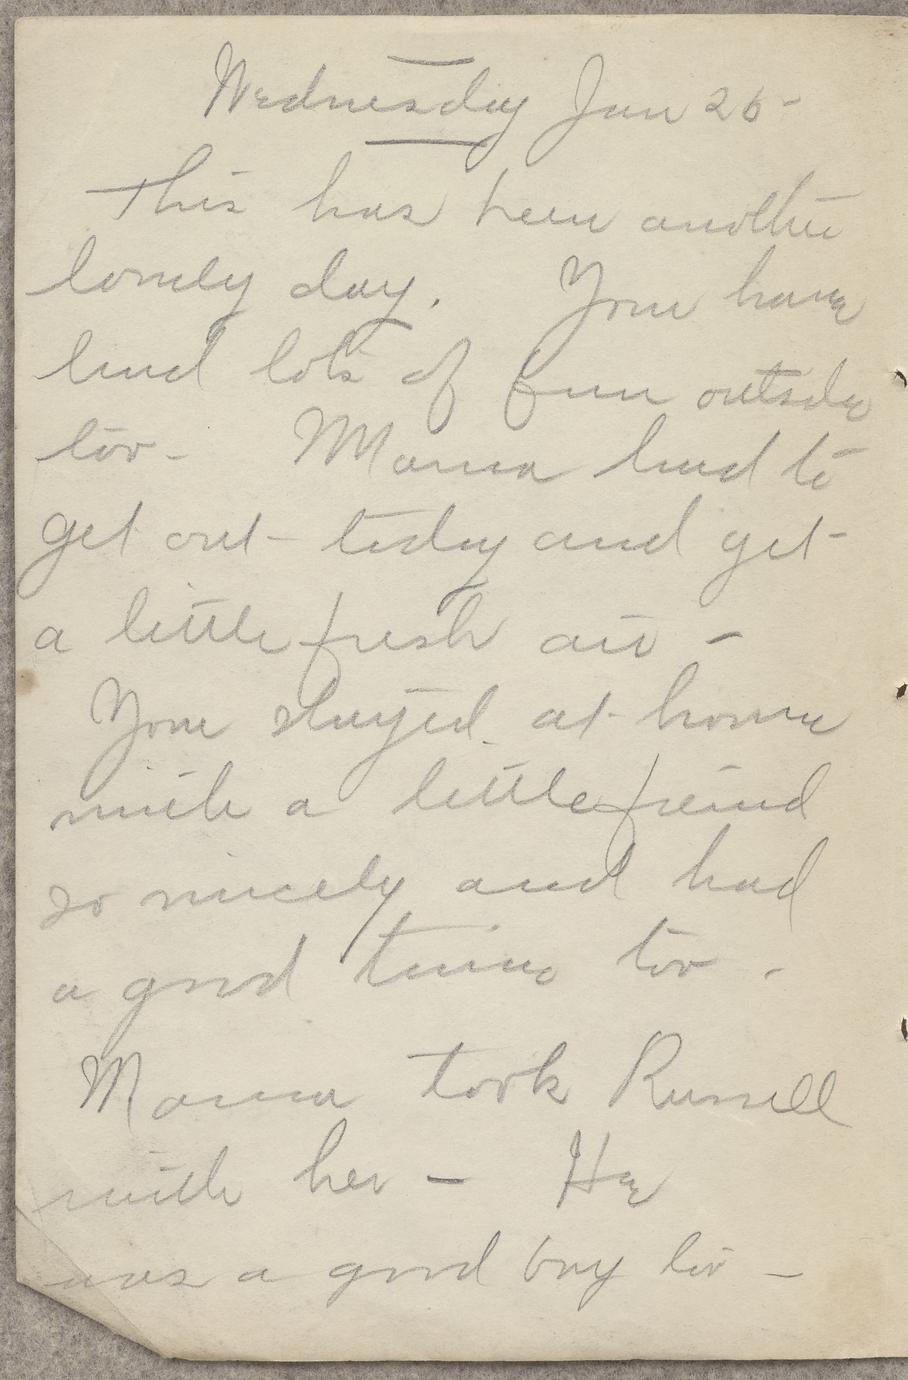 Wednesday Jan 26-
This has been another
lonely day. You have
had lots of fun outside
too- Mama had to
get out- today and get
a little fresh air -
You stayed at home
with a little freind
so nicely and had
a good time too.
Mama took Russell
with her - He
was a good boy too -